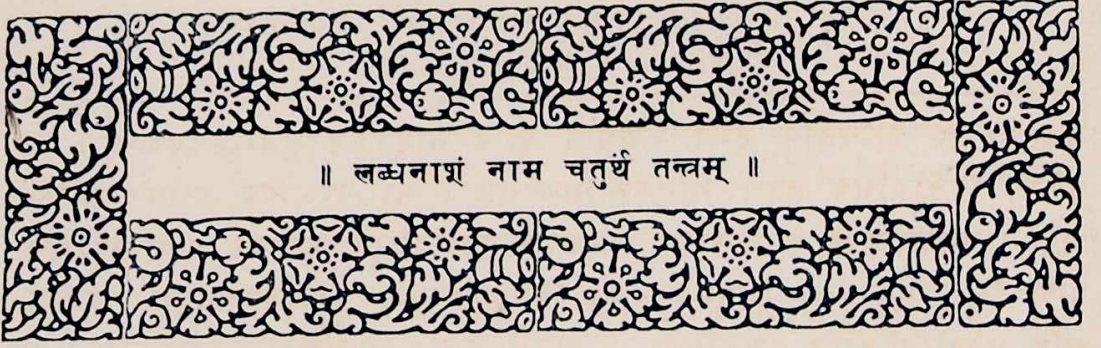 ॥ लब्धनाशं नाम चतुर्थं तन्त्रम् ॥